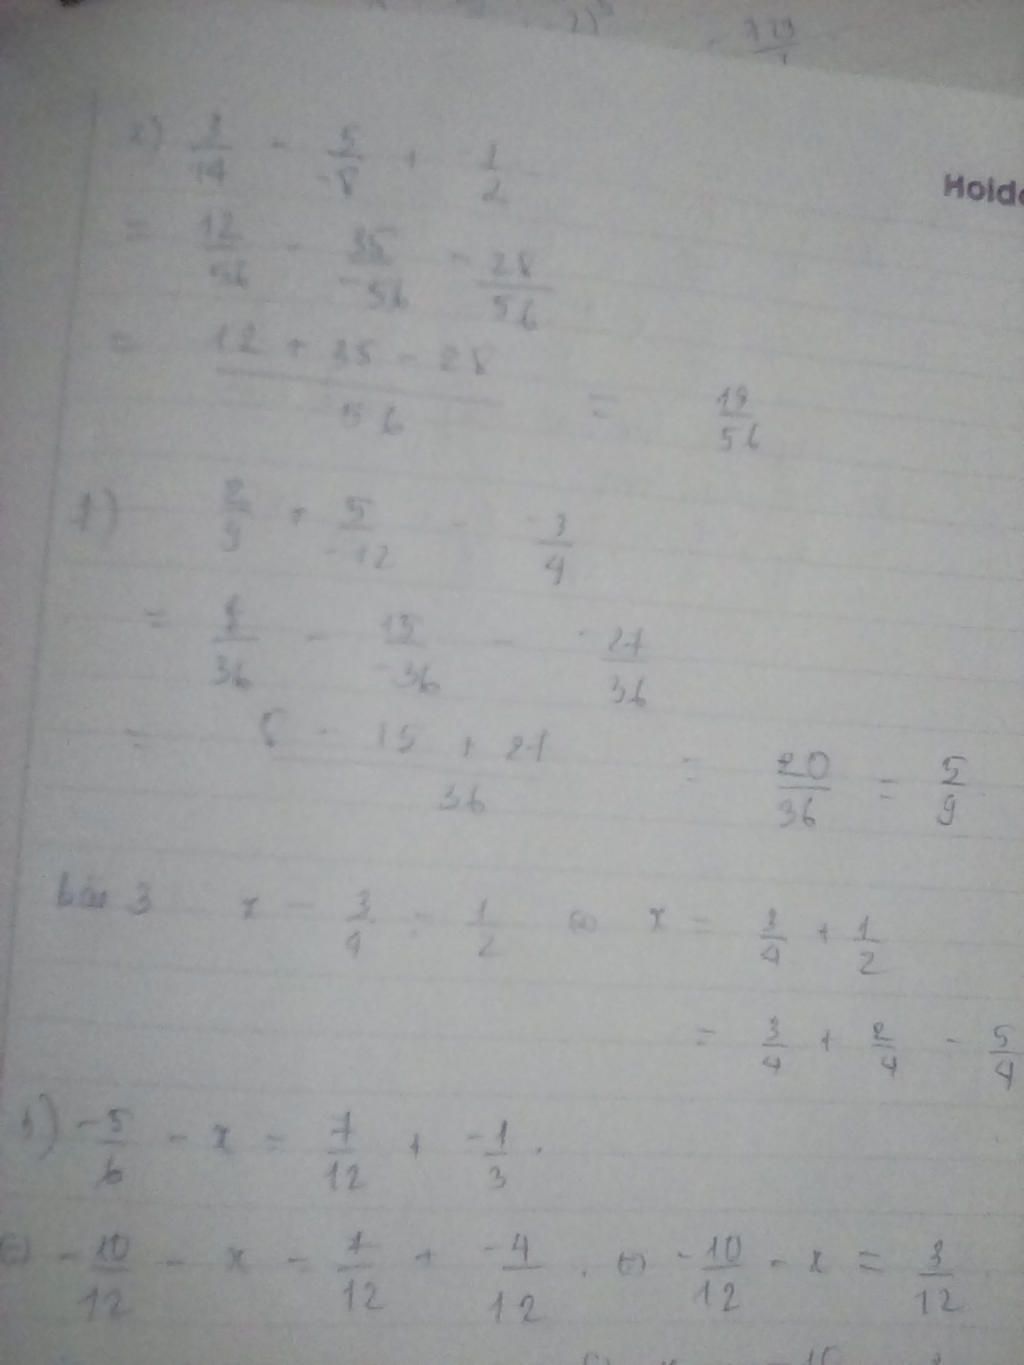 3/14 - 5/-8 + -1/2
= 12/56 - 35/-56 - 28/56
= (12 + 35 - 28)/56 = 19/56
Holdo
f) 2/9 + 5/-12 - -3/4
= 8/36 - 15/-36 - -27/36
= (8 - 15 + 27)/36 = 20/36 = 5/9
bài 3 x - 3/4 = 1/2 ⇔ x = 3/4 + 1/2
= 3/4 + 2/4 = 5/4
b) -5/6 - x = 7/12 + -1/3.
⇔ -10/12 - x = 7/12 + -4/12. ⇔ -10/12 - x = 3/12